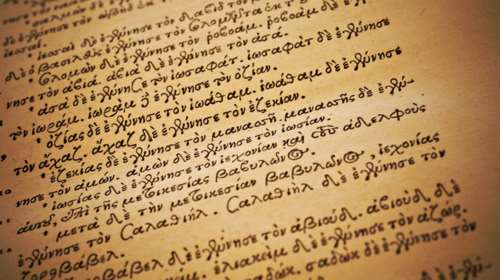 ἰεσσαί. ἰεσσαὶ δὲ ἐγέννησε τὸν δαβὶδ τὸν
δὲ ὁ βασιλεὺς ἐγέννησε τὸν σολομῶντα ἐκ
σολομὼν δὲ ἐγέννησε τὸν ῥοβοάμ. ῥοβοὰμ δὲ ἐγέν
νησε τὸν ἀβιά. ἀβιὰ δὲ ἐγέννησε τὸν ἀσά.
ἀσὰ δὲ ἐγέννησε τὸν ἰωσαφάτ. ἰωσαφὰτ δὲ ἐγέννησε
τὸν ἰωράμ. ἰωρὰμ δὲ ἐγέννησε τὸν ὀζίαν.
ὀζίας δὲ ἐγέννησε τὸν ἰωάθαμ. ἰωάθαμ δὲ ἐγέννησε
τὸν ἄχαζ. ἄχαζ δὲ ἐγέννησε τὸν ἐζεκίαν.
ἐζεκίας δὲ ἐγέννησε τὸν μανασσῆ. μανασσῆς δὲ ἐγέν-
νησε τὸν ἀμών. ἀμὼν δὲ ἐγέννησε τὸν ἰωσίαν.
ἰωσίας δὲ ἐγέννησε τὸν ἰεχονίαν καὶ τοὺς ἀδελφοὺς
αὐτοῦ, ἐπὶ τῆς μετοικεσίας βαβυλῶνος.
μετὰ δὲ τὴν μετοικεσίαν βαβυλῶνος, ἰεχονίας
ἐγέννησε τὸν Σαλαθιήλ. Σαλαθιὴλ δὲ ἐγέννησε τὸν
ζοροβάβελ.
δὲ ἐγέννησε τὸν ἀβιούδ. ἀβιοὺδ δὲ
ἐλιακεὶμ δὲ ἐγέννησε τὸν ἀζώρ.
σαδώκ. σαδὼκ δὲ ἐγέννησε τὸν